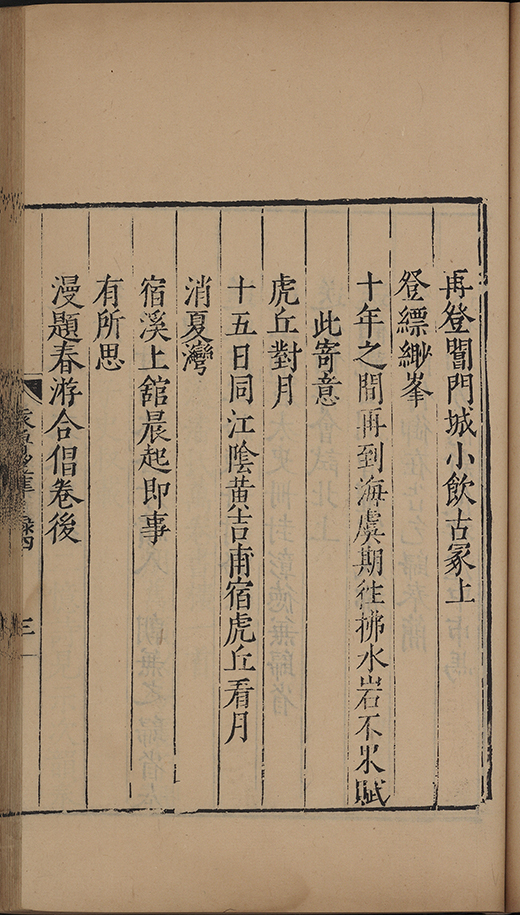 再登閶門城小飲古冢上
登縹緲峯
十年之間再到海虞期往拂水岩不果賦
此寄意
虎丘對月
十五日同江陰黃吉甫宿虎丘看月
消夏灣
宿溪上舘晨起即事
有所思
漫題春游合倡卷後
三